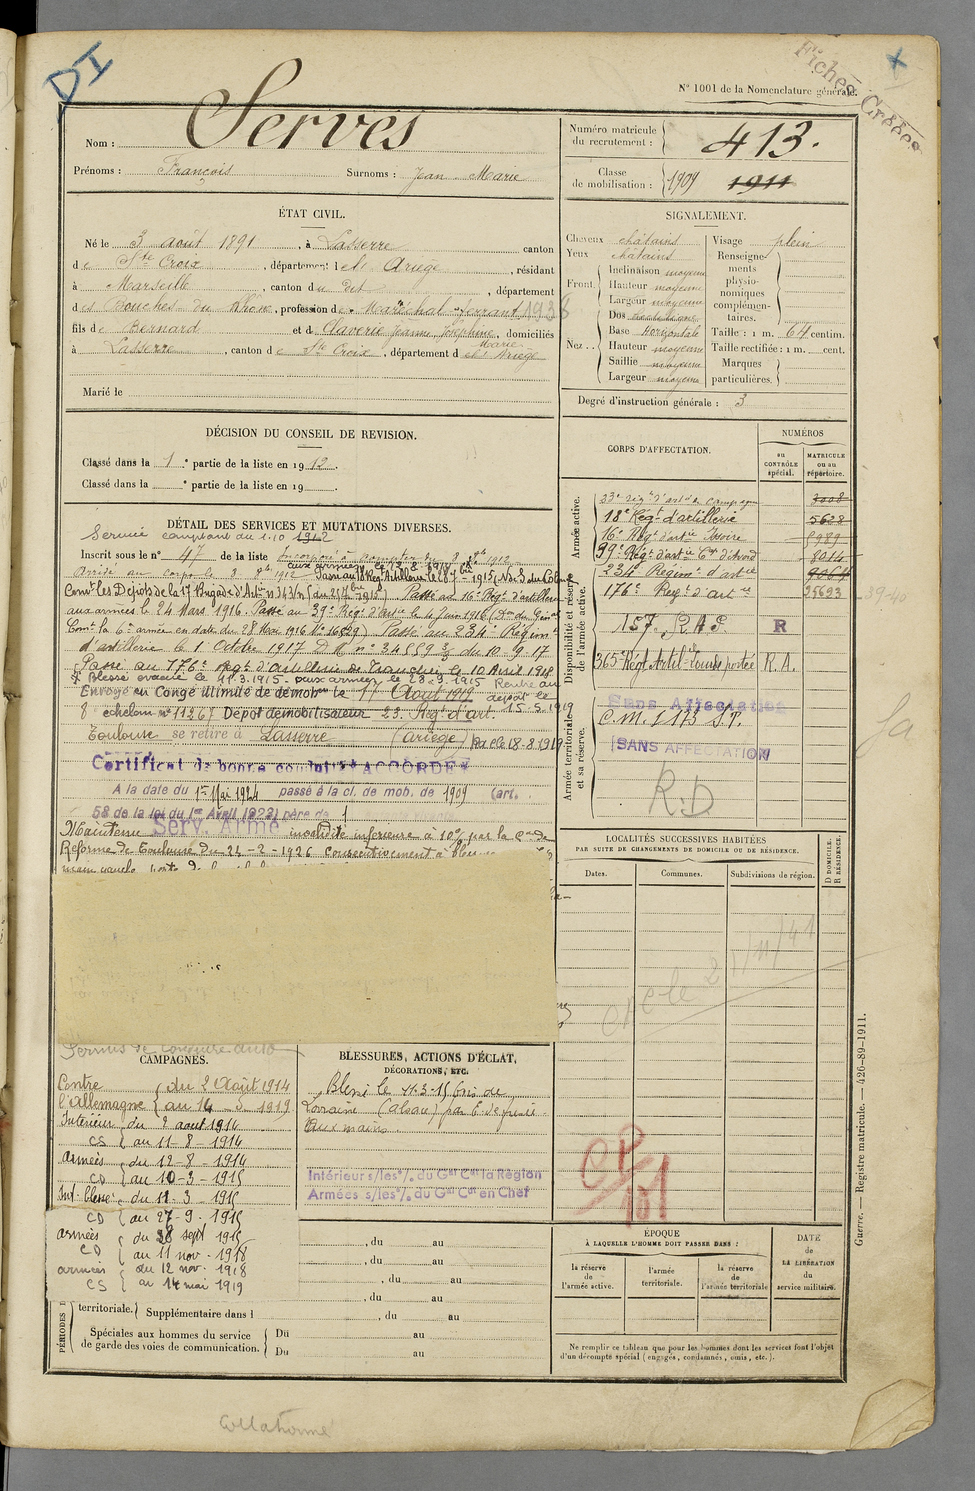 DI
Fiches Créées
N° 1001 de la Nomenclature générale.
Nom : Servès
Prénoms : François Surnoms : Jean Marie
Numéro matricule du recrutement : 413.
Classe de mobilisation : 1909 1911
ÉTAT CIVIL.
Né le 3 août 1891, à Lasserre canton
de Ste Croix, département de l'Ariège, résidant
à Marseille, canton du dit, département
des Bouches du Rhône, profession de Maréchal ferrant 1938
fils de Bernard et de Claverie Jeanne Joséphine, domiciliés
Marie
à Lasserre, canton de Ste Croix, département de l'Ariège
Marié le
SIGNALEMENT.
Cheveux châtains
Yeux châtains
Front. Inclinaison moyenne
Hauteur moyenne
Largeur moyenne
Nez . . Dos rectiligne
Base horizontale
Hauteur moyenne
Saillie moyenne
Largeur moyenne
Visage plein
Renseignements physionomiques complémentaires.
Taille : 1 m. 64 centim.
Taille rectifiée : 1 m. cent.
Marques particulières.
Degré d'instruction générale : 3
DÉCISION DU CONSEIL DE REVISION.
Classé dans la 1e partie de la liste en 1912.
Classé dans la e partie de la liste en 19
DÉTAIL DES SERVICES ET MUTATIONS DIVERSES.
Service comptant du 1.10 1912
Inscrit sous le n° 47 de la liste Incorporé à compter du 8 8bre 1912
aux armées le 12-8-1914
Arrivé au corps le 8 8bre 1912 Passé au 18 Régt Artillerie le 28-7-1915 (N.. 3 du Colonel
Comt les Dépôts de la 17 Brigade d'Artie n° 343/n (du 25 7bre 1915) Passé au 16e Régt d'artillerie
aux armées le 24 Mars 1916. Passé au 39e Régt d'Artie le 4 Juin 1916 (Don du Génal
Comt la 6e armée en date du 28 Mai 1916 N° 16529) Passé au 234e Régiment
d'artillerie le 1er Octobre 1917 D M n° 34559 3/3 du 10-9-17
Passé au 176e Régt d'Artillerie de Tranchée le 10 Avril 1918
Blessé évacué le 11.3.1915. aux armées le 28-9.1915 Rentré au
Envoyé en Congé illimité de démobon le 17 Août 1919 dépôt le
8 échelon n° 11267 Dépôt démobilisateur 23. Régt d'art. 15-5-1919
Toulouse se retire à Lasserre (Ariège)
Certificat de bonne conduite ACCORDÉ
A la date du 1er Mai 1924 passé à la cl. de mob. de 1909 (art.
58 de la loi du 1er Avril 1923) père de 1
Maintenu Serv. Armé invalidité inférieure à 10% par la Con de
Réforme de Toulouse du 22-2-1926 Consécutivement à
Permis de conduire auto
CORPS D'AFFECTATION.
NUMÉROS
au CONTRÔLE spécial.
MATRICULE ou au répertoire.
Armée active.
33e Régt d'artie de campagne 3008
18e Régt d'artillerie 5628
16e Régt d'artie Issoire 8989
39e Régt d'artie 8014
Disponibilité et réserve de l'armée active.
234e Régimt d'artie 9064
176e Régt d'artie 25623 39-40
157. R.A.P. R
365e Régt Artil-ie lourde portée R.A.
Armée territoriale et sa réserve.
Sans Affectation
C.M. 173 S.P.
SANS AFFECTATION
R.D
LOCALITÉS SUCCESSIVES HABITÉES
PAR SUITE DE CHANGEMENTS DE DOMICILE OU DE RÉSIDENCE.
Dates.
Communes.
Subdivisions de région.
D DOMICILE.
R RÉSIDENCE.
CP/101
CAMPAGNES.
Contre du 2 Août 1914
l'Allemagne au 14 - 5 - 1919
Intérieur du 2 août 1914
CS au 11-8-1914
Armées du 12-8-1914
CD au 10-3-1915
Int. blessé du 11-3-1915
CD au 27-9-1915
armées du 28 sept 1915
CD au 11 nov. 1918
armées du 12 nov. 1918
CS au 14 mai 1919
BLESSURES, ACTIONS D'ÉCLAT,
DÉCORATIONS, ETC.
Blessé le 11-3-15 (bois de
Lorraine (Alsace) par E. de
aux mains.
Intérieur s/les % du Gal Cdt la Région
Armées s/les % du Gal Cdt en Chef
, du au
, du au
, du au
, du au
PÉRIODES
territoriale. Supplémentaire dans l , du au
Spéciales aux hommes du service de garde des voies de communication. Du au
Du au
ÉPOQUE
À LAQUELLE L'HOMME DOIT PASSER DANS :
la réserve de l'armée active.
l'armée territoriale.
la réserve de l'armée territoriale
DATE de LA LIBÉRATION du service militaire.
Ne remplir ce tableau que pour les hommes dont les services font l'objet
d'un décompte spécial (engagés, condamnés, omis, etc.).
Guerre. — Registre matricule. — 426-89-1911.
Collationné